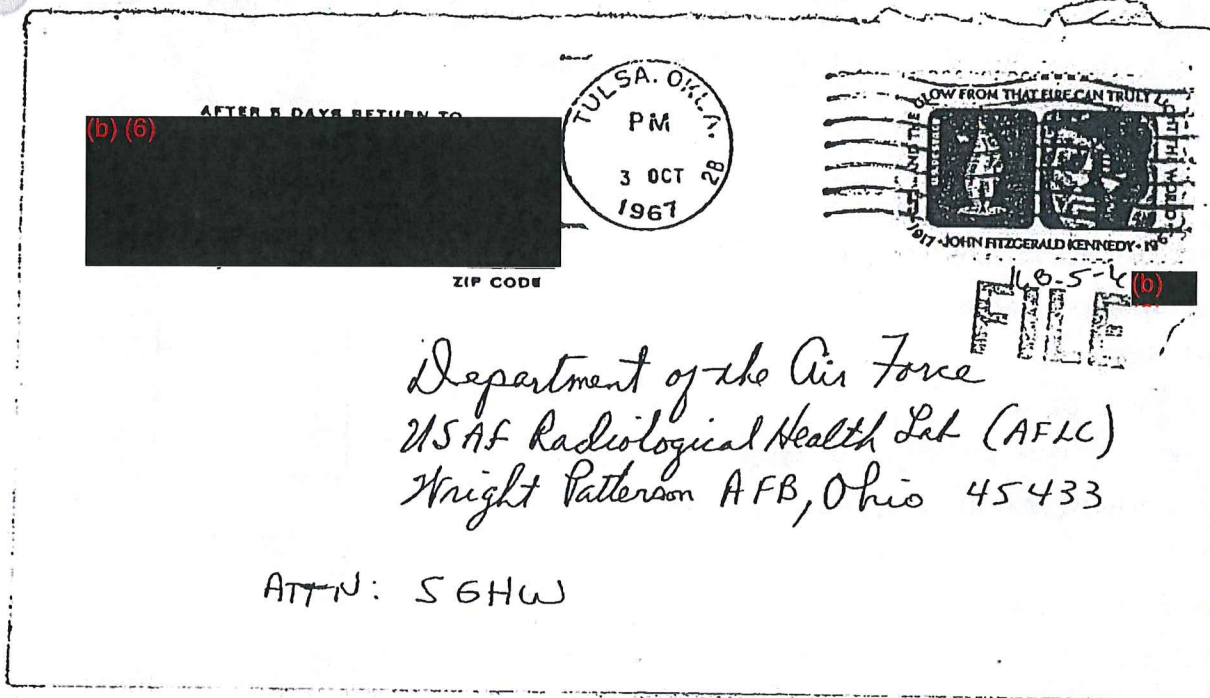 AFTER 5 DAYS RETURN TO
(b) (6)
ZIP CODE
TULSA. OKLA.
PM
3 OCT 28
1967
AND THE GLOW FROM THAT FIRE CAN TRULY LIGHT THE WORLD
U.S. POSTAGE
1917 · JOHN FITZGERALD KENNEDY · 196
(b)
FILE
Department of the Air Force
USAF Radiological Health Lab (AFLC)
Wright Patterson AFB, Ohio 45433
ATTN: SGHW